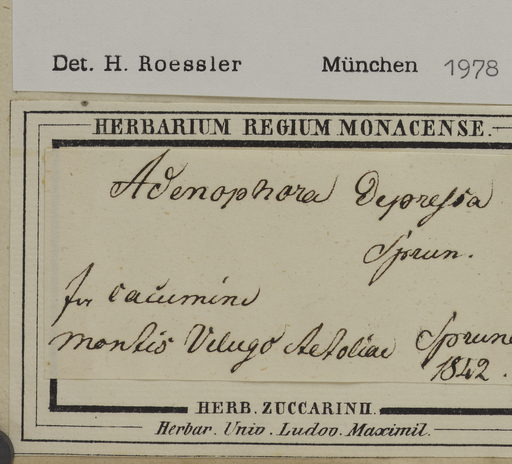 Det. H. Roessler München 1978
HERBARIUM REGIUM MONACENSE.
Adenophora Depressa
Sprun.
In cacumine
montis Velugo Aetoliae Sprune
1842.
HERB. ZUCCARINII.
Herbar. Univ. Ludov. Maximil.